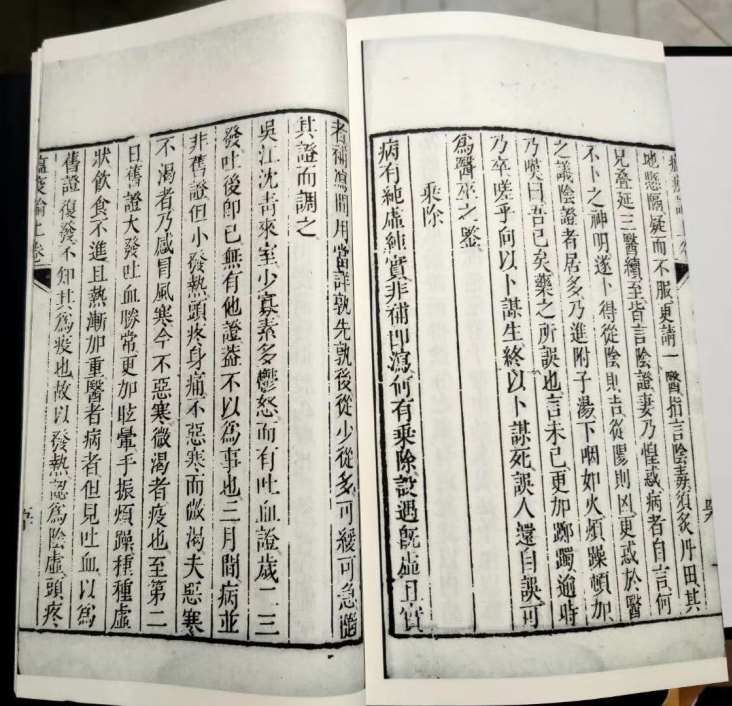 瘟疫論上卷
地懸隔疑而不服更請一醫指言陰毒須灸丹田其
兄疊延三醫續至皆言陰證妻乃惶惑病者自言何
不卜之神明遂卜得從陰則吉從陽則凶更惑於醫
之議陰證者居多乃進附子湯下咽如火煩躁頓加
乃嘆曰吾已矣藥之所誤也言未已更加躑躅逾時
乃卒嗟乎向以卜謀生終以卜謀死誤人還自誤可
為醫巫之鑒
乘除
病有純虛純實非補即瀉何有乘除設遇旣虛且實
者補瀉間用當詳孰先孰後從少從多可緩可急隨
其證而調之
吳江沈青來室少寡素多鬱怒而有吐血證歲二三
發吐後卽已無有他證葢不以為事也三月間病並
非舊證但小發熱頭疼身痛不惡寒而微渴夫惡寒
不渴者乃感冒風寒今不惡寒微渴者疫也至第二
日舊證大發吐血勝常更加眩暈手振煩躁種種虛
狀飲食不進且熱漸加重醫者病者但見吐血以為
舊證復發不知其為疫也故以發熱認為陰虛頭疼
瘟疫論上卷